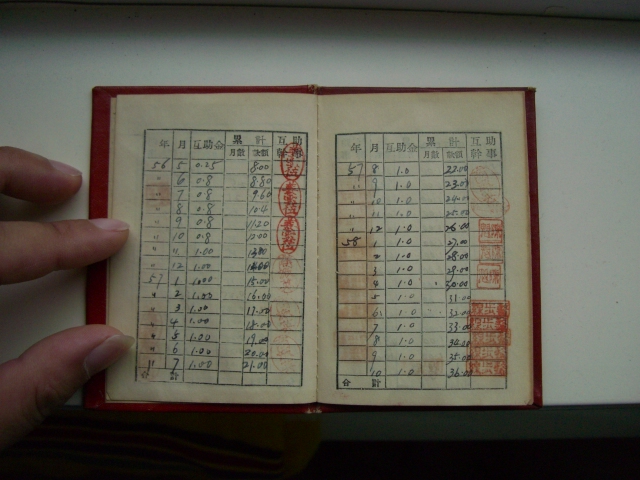 年 月 互助金 累計 互助
月數 款額 幹事
56 5 0.25 8.00
〃 6 0.8 8.80
〃 7 0.8 9.60
〃 8 0.8 10.4
〃 9 0.8 11.20
〃 10 0.8 12.00
〃 〃 1.00
〃 12 1.00
57 1 1.00 15.00
〃 2 1.00 16.00
〃 3 1.00 17.00
〃 4 1.00 18.00
〃 5 1.00 19.00
〃 6 1.00 20.00
〃 7 1.00 21.00
合 計
年 月 互助金 累計 互助
月數 款額 幹事
57 8 1.0 22.00
〃 9 1.0 23.00
〃 10 1.0 24.00
〃 11 1.0 25.00
〃 12 1.0 26.00
58 1 1.0 27.00
2 1.0 28.00
3 1.0 29.00
4 1.0 30.00
5 1.0 31.00
6 1.0 32.00
7 1.0 33.00
8 1.0 34.00
9 1.0 35.00
10 1.0 36.00
合 計